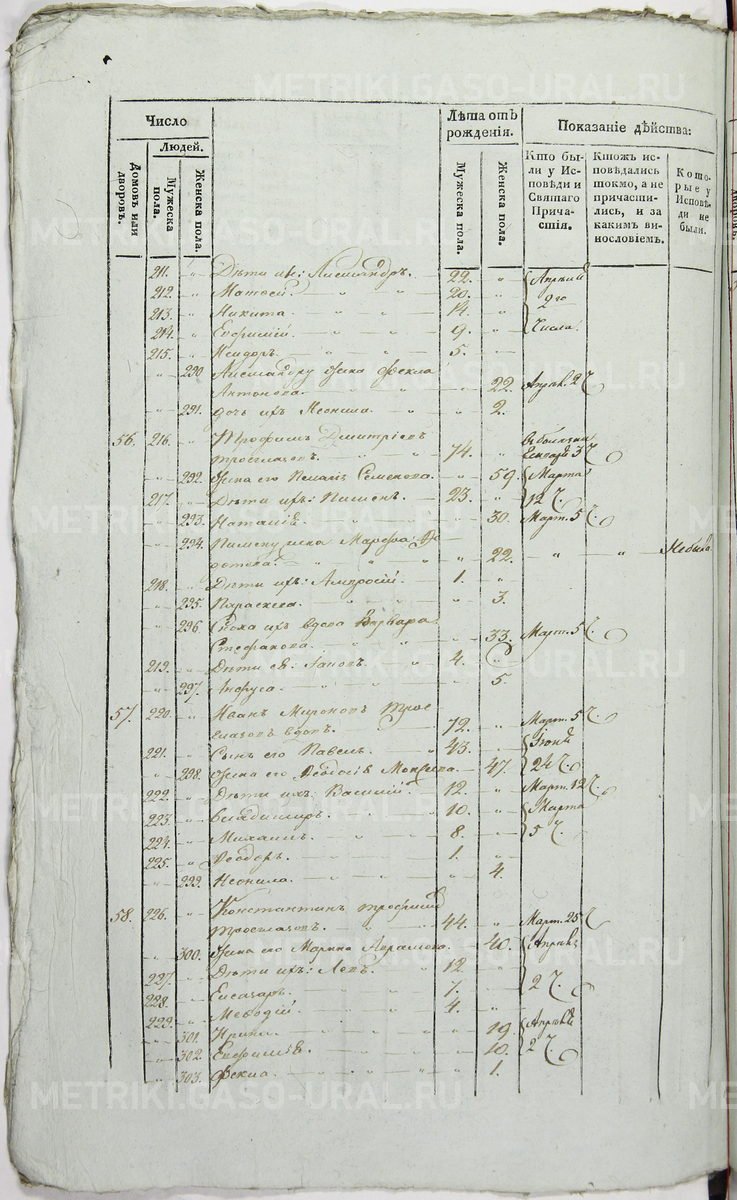 Число
Людей.
Домовъ или дворовъ.
Мужеска пола.
Женска пола.
Лѣта отъ рожденія.
Мужеска пола.
Женска пола.
Показаніе дѣйства:
Кто были у Исповѣди и Святаго Причастія.
Ктожъ исповѣдались токмо, а не причастились, и за какимъ винословіемъ.
Которые у Исповѣди не были.
211. Дѣти ихъ: Александръ. 22. Апрѣля
212. Матѳей. 20. 2го
213. Никита 14. Числа.
214. Евфимій. 9.
215. Исидоръ. 5.
290 Александру жена Фекла
Антонова. 22. Апрѣл. 2 Ч.
291. дочь ихъ Неонила. 2.
56. 216. Трофимъ Димитріевъ
74. въ болезни
Генваря 3 Ч.
292. Жена его Пелагія Семенова. 59. Марта
217. Дѣти ихъ: Пименъ. 23. 12 Ч.
293. Наталія. 30. Март. 5 Ч.
294. Пимену жена Марфа
22. Небыла
218. Дѣти ихъ: Амвросій. 1.
295. Параскева. 3.
296 Сноха ихъ вдова Варвара
Стефанова. 33. Март. 5 Ч.
219. Дѣти ея: 4.
297. 5.
57. 220. Иванъ Мироновъ
вдовъ. 72. Март. 5 Ч.
221. Сынъ его Павелъ. 43.
298. Жена его Ѳеодосія 47. 24 Ч.
222. Дѣти ихъ: Василій. 12. Март. 12 Ч.
223. Владимиръ. 10. Марта
224. Михаилъ. 8. 5 Ч.
225. Ѳеодоръ. 1.
299. Неонила. 4.
58. 226. Константинъ Трофимовъ
44. Март. 25 Ч.
300. Жена его Марина Абрамова. 40. Апрѣля
227. Дѣти ихъ: Левъ. 12
228. Елеазаръ. 7. 2 Ч.
229. Меѳодій. 4.
301. Ирина. 19. Апрѣля
302. Евфимія. 10. 2 Ч.
303. Фекла 1.
METRIKI.GASO-URAL.RU